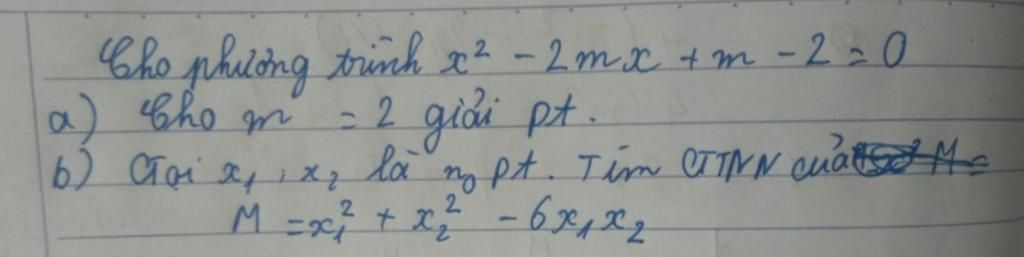 Cho phương trình x² - 2mx + m - 2 = 0
a) Cho m = 2 giải pt.
b) Gọi x₁, x₂ là n₀ pt. Tìm GTNN của
M = x₁² + x₂² - 6x₁x₂